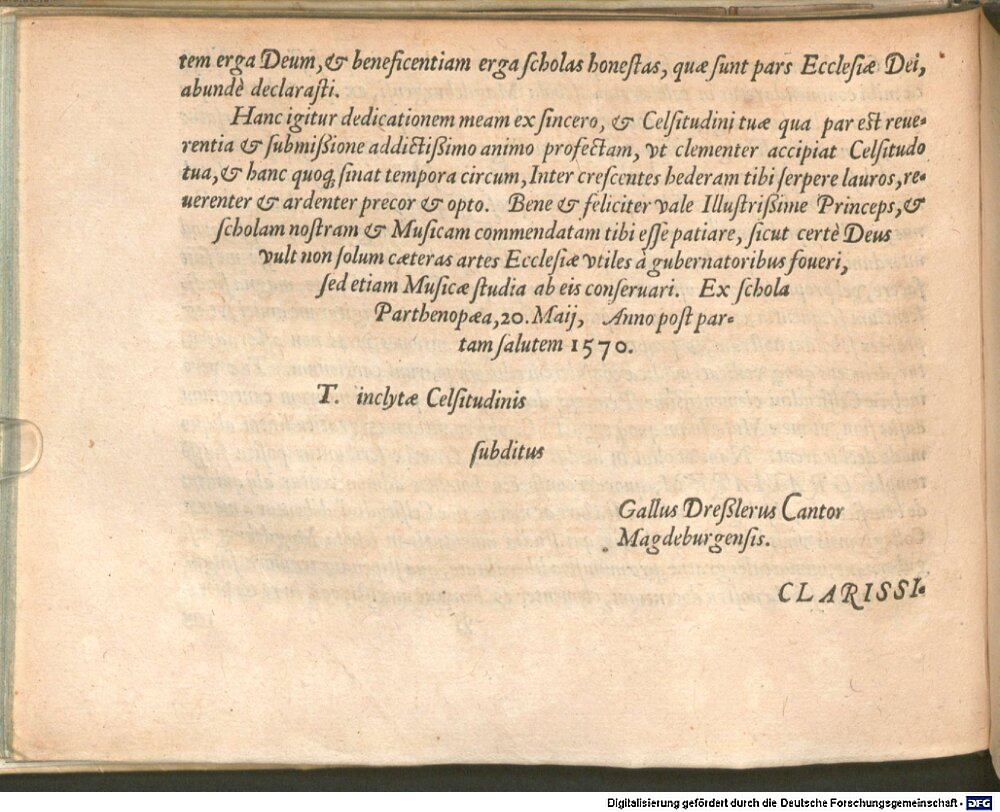 tem erga Deum, & beneficentiam erga ſcholas honeſtas, quæ ſunt pars Eccleſiæ Dei,
abundè declaraſti.
Hanc igitur dedicationem meam ex ſincero, & Celſitudini tuæ qua par eſt reue-
rentia & ſubmißione addictißimo animo profectam, vt clementer accipiat Celſitudo
tua, & hanc quoq; ſinat tempora circum, Inter creſcentes hederam tibi ſerpere lauros, re-
uerenter & ardenter precor & opto. Bene & feliciter vale Illuſtrißime Princeps, &
ſcholam noſtram & Muſicam commendatam tibi eſſe patiare, ſicut certè Deus
vult non ſolum cæteras artes Eccleſiæ vtiles à gubernatoribus foueri,
ſed etiam Muſicæ ſtudia ab eis conſeruari. Ex ſchola
Parthenopæa, 20. Maij, Anno poſt par-
tam ſalutem 1570.
T. inclytæ Celſitudinis
ſubditus
Gallus Dreßlerus Cantor
Magdeburgenſis.
CLARISSI-
Digitalisierung gefördert durch die Deutsche Forschungsgemeinschaft - DFG